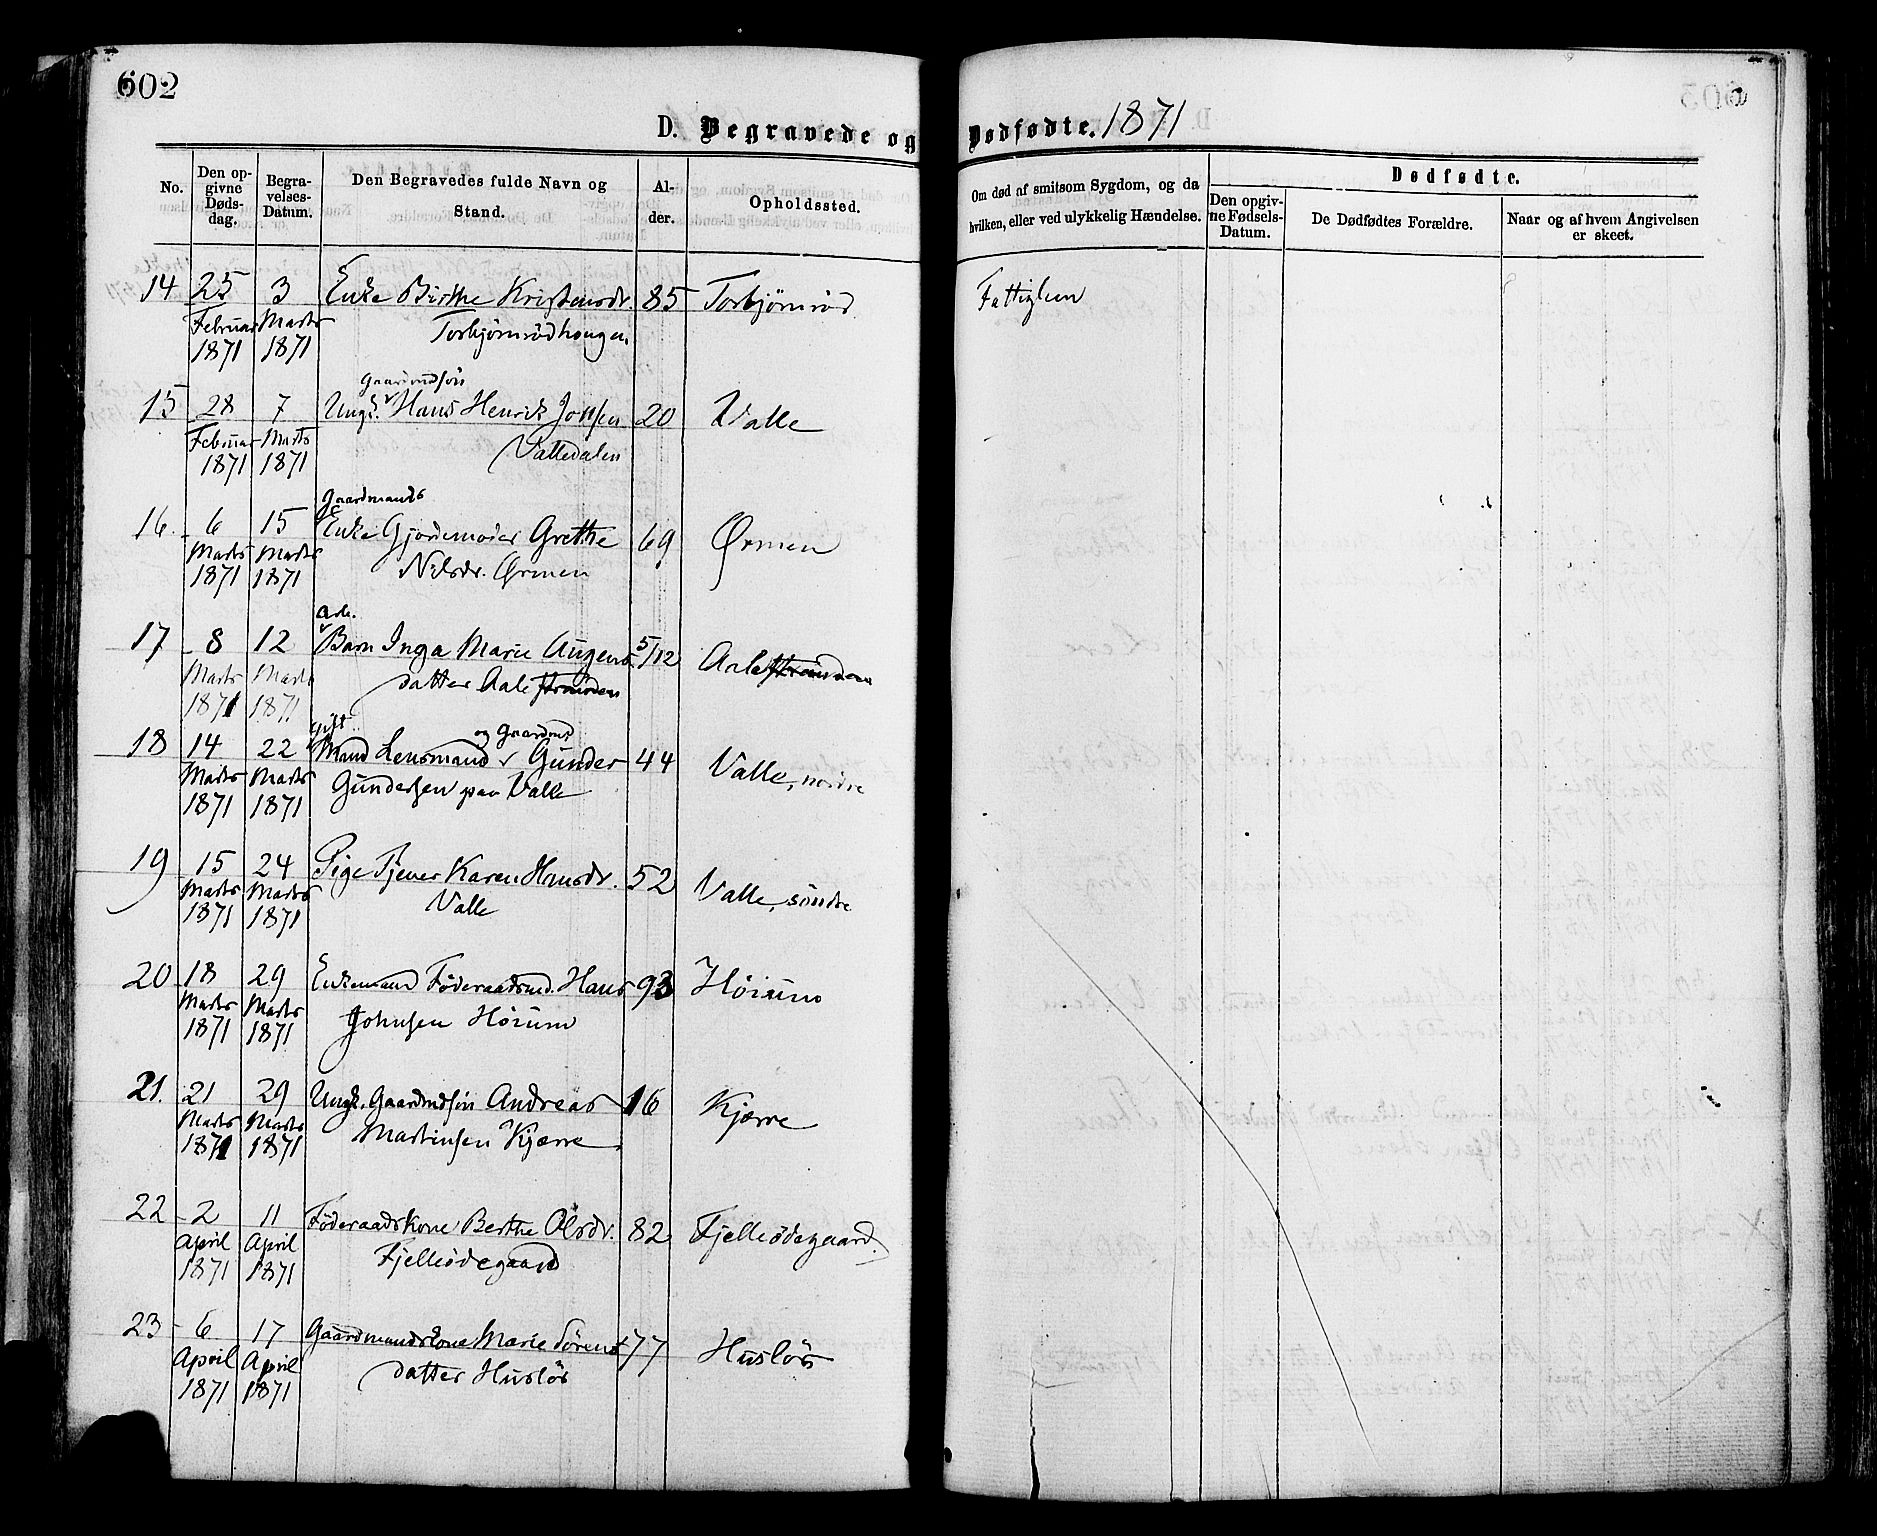 602
D. Begravede og Dødfødte. 1871
No.
Den opgivne Dødsdag.
Begravelses-Datum.
Den Begravedes fulde Navn og Stand.
Alder.
Opholdssted.
Om død af smitsom Sygdom, og da hvilken, eller ved ulykkelig Hændelse.
Dødfødte.
Den opgivne Fødsels-Datum.
De Dødfødtes Forældre.
Naar og af hvem Angivelsen er skeet.
14 25 3 Enke Birthe Kristensdr. 85 Torbjørnrød
Februar Marts Torbjørnrødhaugen
1871 1871
Gaardmdsøn
15 28 7 Ungk. Hans Henrik 20 Valle
Februar Marts Valledalen
1871 1871
Gaardmands
16. 6 15 Enke Gjordemoder Grethe 69 Ørmen
Marts Marts Nilsdr. Ørmen
1871 1871
17 8 12 Barn Inga Marie 5/12 Aalestranden
Marts Marts datter Aalestranden
1871 1871
gift og Gaardmd
18 14 22 Mand Lensmand Gunder 44 Valle, nordre
Marts Marts Gundersen paa Valle
1871 1871
19 15 24 Pige Tjener Karen Hansdr. 52 Valle, søndre
Marts Marts Valle
1871 1871
20 18 29 Enkemand Føderaadsmd. Hans 93 Hørum
Marts Marts Johnsen Hørum
1871 1871
21. 21 29 Ungk. Gaardmdsøn Andreas 16 Kjærre
Marts Marts Martinsen Kjærre
1871 1871
22 2 11 Føderaadskone Berthe Olsdr. 82 Fjelleødegaard
April April Fjelleødegaard
1871 1871
23 6 17 Gaardmandskone Marie Sørens 77 Husløs
April April datter Husløs
1871 1871